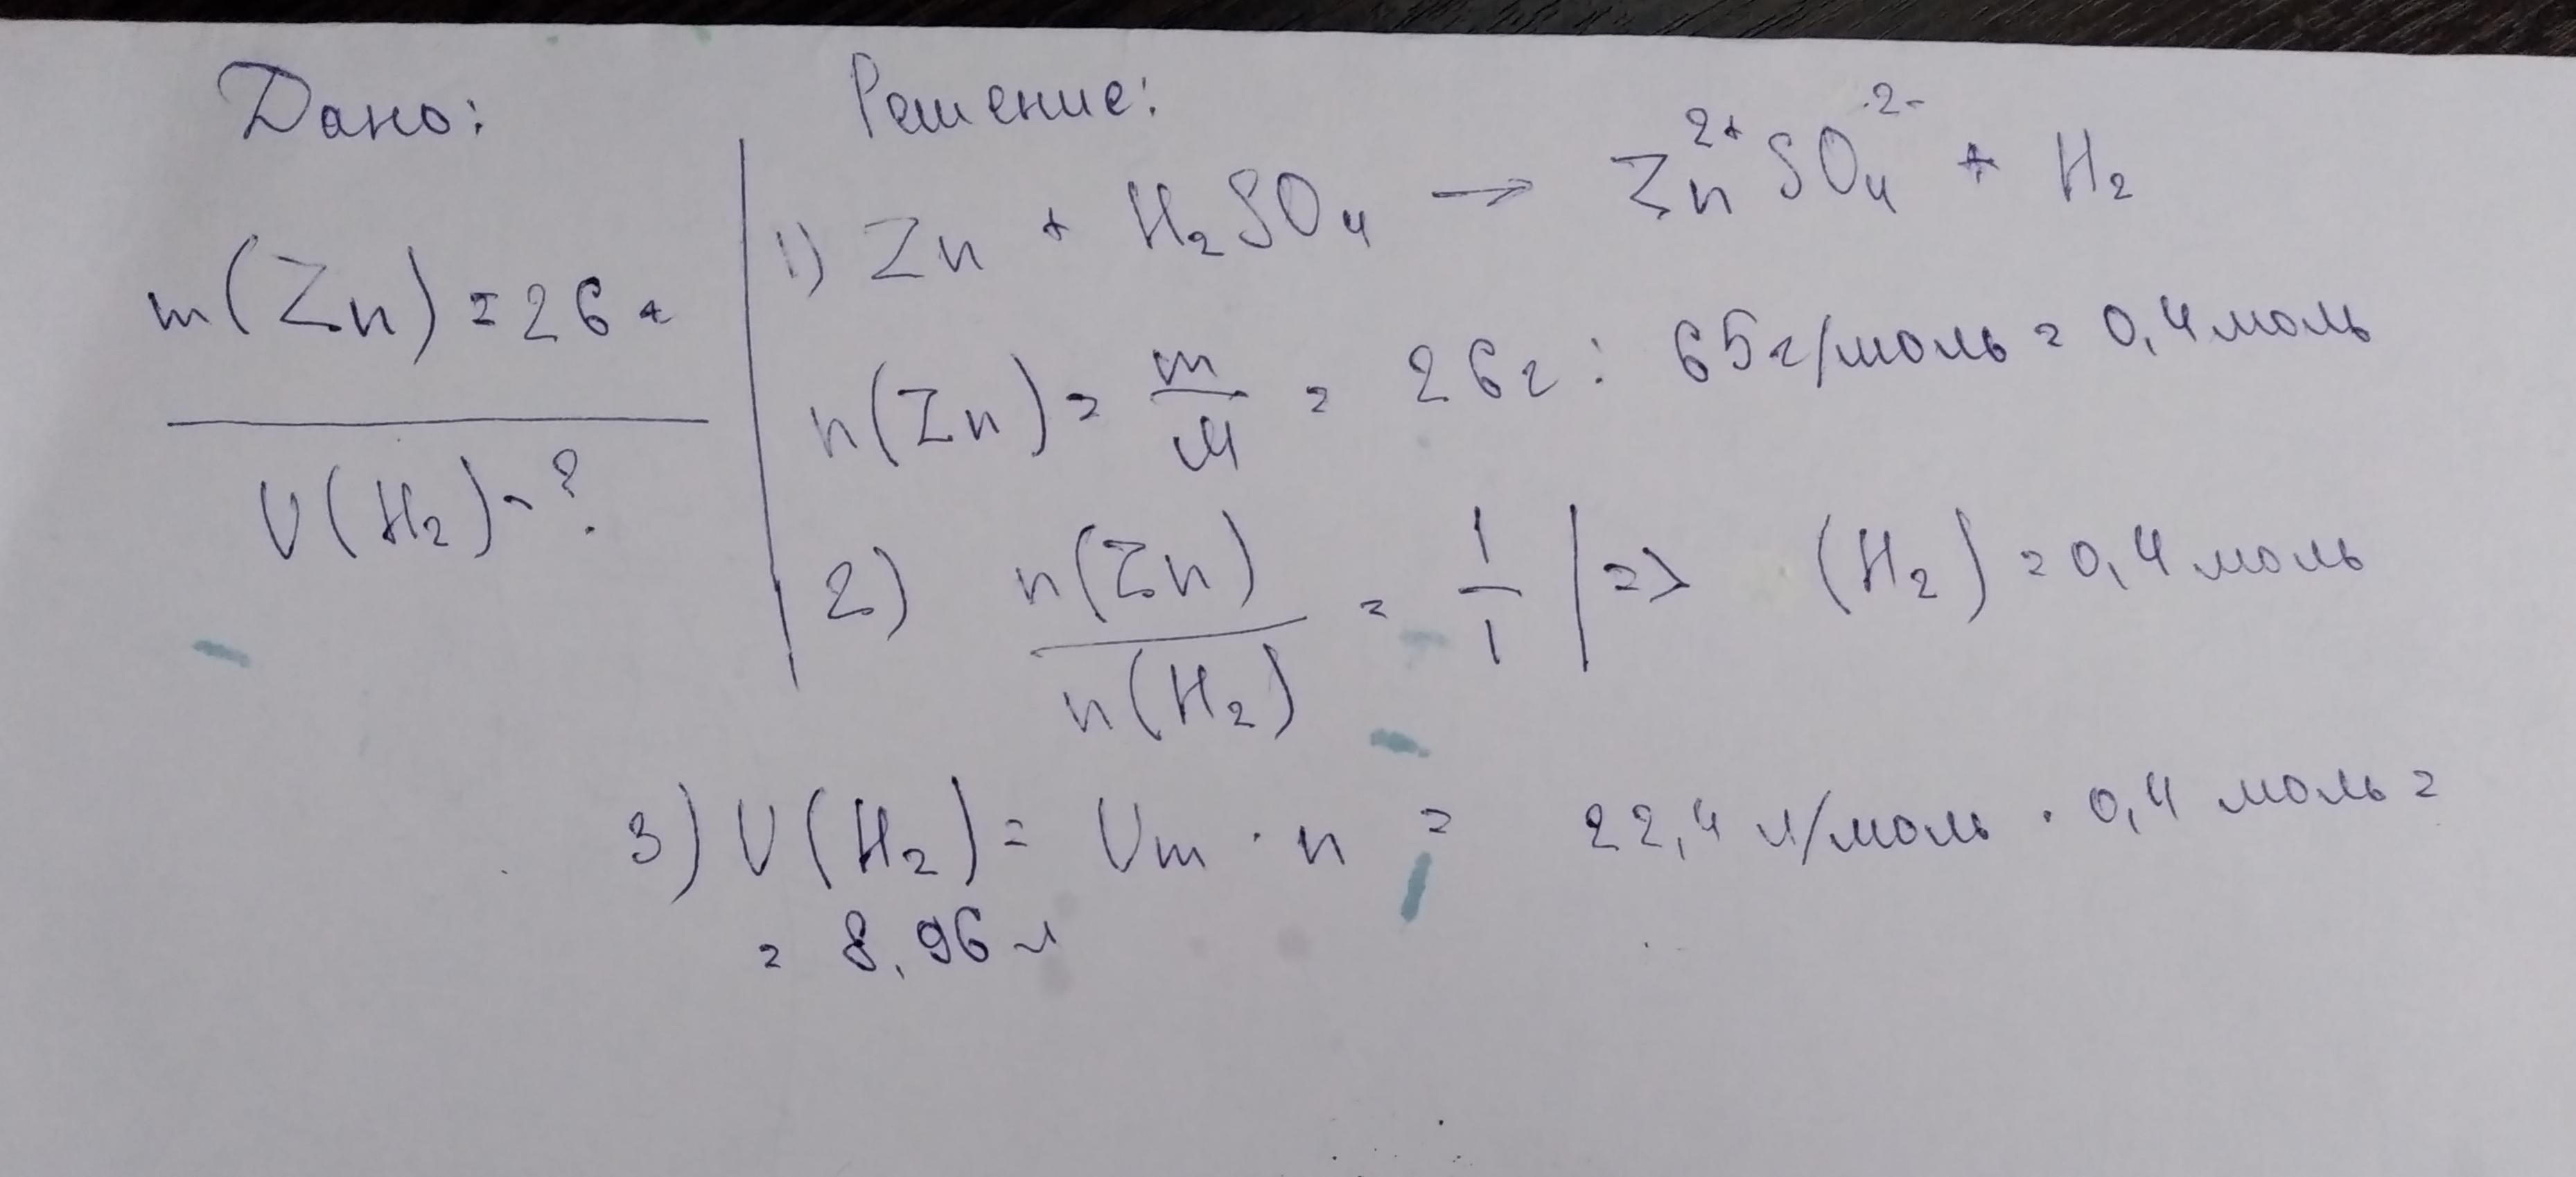 Дано:
m(Zn) = 26 г
V(H₂) - ?
Решение:
1) Zn + H₂SO₄ → Zn²⁺SO₄²⁻ + H₂
n(Zn) = m/M = 26 г : 65 г/моль = 0,4 моль
2) n(Zn)/n(H₂) = 1/1 | => (H₂) = 0,4 моль
3) V(H₂) = Vm · n = 22,4 л/моль · 0,4 моль =
= 8,96 л